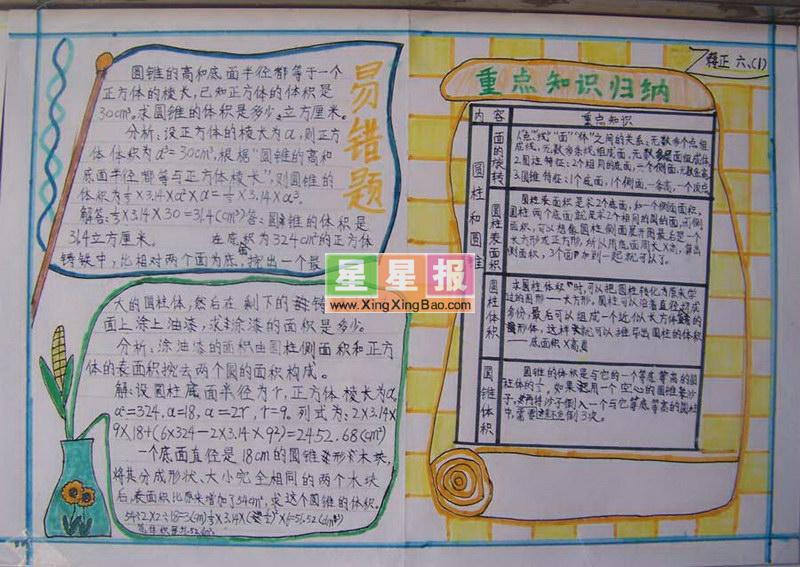 易错题
圆锥的高和底面半径都等于一个
正方体的棱长,已知正方体的体积是
30cm³。求圆锥的体积是多少立方厘米。
分析:设正方体的棱长为a,则正方
体体积为a³=30cm³,根椐"圆锥的高和
底面半径都等与正方体棱长",则圆锥的
体积为⅓×3.14×a²×a=⅓×3.14×a³。
解答:⅓×3.14×30=31.4(cm³)答:圆锥的体积是
31.4立方厘米。 在底面积为324cm²的正方体
铸铁中,以相对两个面为底,挖出一个最
大的圆柱体,然后在剩下的铸
面上涂上油漆,求涂漆的面积是多少。
分析:涂油漆的面积由圆柱侧面积和正方
体的表面积挖去两个圆的面积构成。
解:设圆柱底面半径为r,正方体棱长为a,
a²=324,a=18,a=2r,r=9。列式为:2×3.14×
9×18+(6×324-2×3.14×9²)=2452.68(cm²)
一个底面直径是18cm的圆锥形木块,
将其分成形状、大小完全相同的两个木块
后,表面积比原来增加了54cm²,求这个圆锥的体积。
54÷2×2÷18=3(cm)
释正 六、(1)
重点知识归纳
内容 重点知识
圆柱和圆锥
面的旋转
1."点""线""面""体"之间的关系:无数多个点组
成线,无数多条线组成面,无数多层面组成体
2.圆柱特征:2个相同的底面,一个侧面,无数条高
3.圆锥特征:1个底面,1个侧面,一条高,一个顶点
圆柱表面积
圆柱表面积是求2个底面,和一个侧面面积。
圆柱两个底面就是求2个相同的圆的面,而侧
面积,可以想像圆柱侧面展开图是一个
长方形或正方形,所以用底面周长×高,算出
侧面积,3个面加到一起就可以了。
圆柱体积
求圆柱体积时,可以把圆柱转化为原来学
过的图形——长方形。圆柱可以沿着直径切成
多份,最后可以组成一个近似长方体的
形体,这样就可以推导出圆柱的体积
——底面积×高
圆锥体积
圆锥的体积是与它的一个等底等高的圆
柱体的⅓,如果用一个空心的圆锥装沙
子,将沙子倒入一个与它等底等高的圆柱
中,需要倒3次。
星星报
www.XingXingBao.com